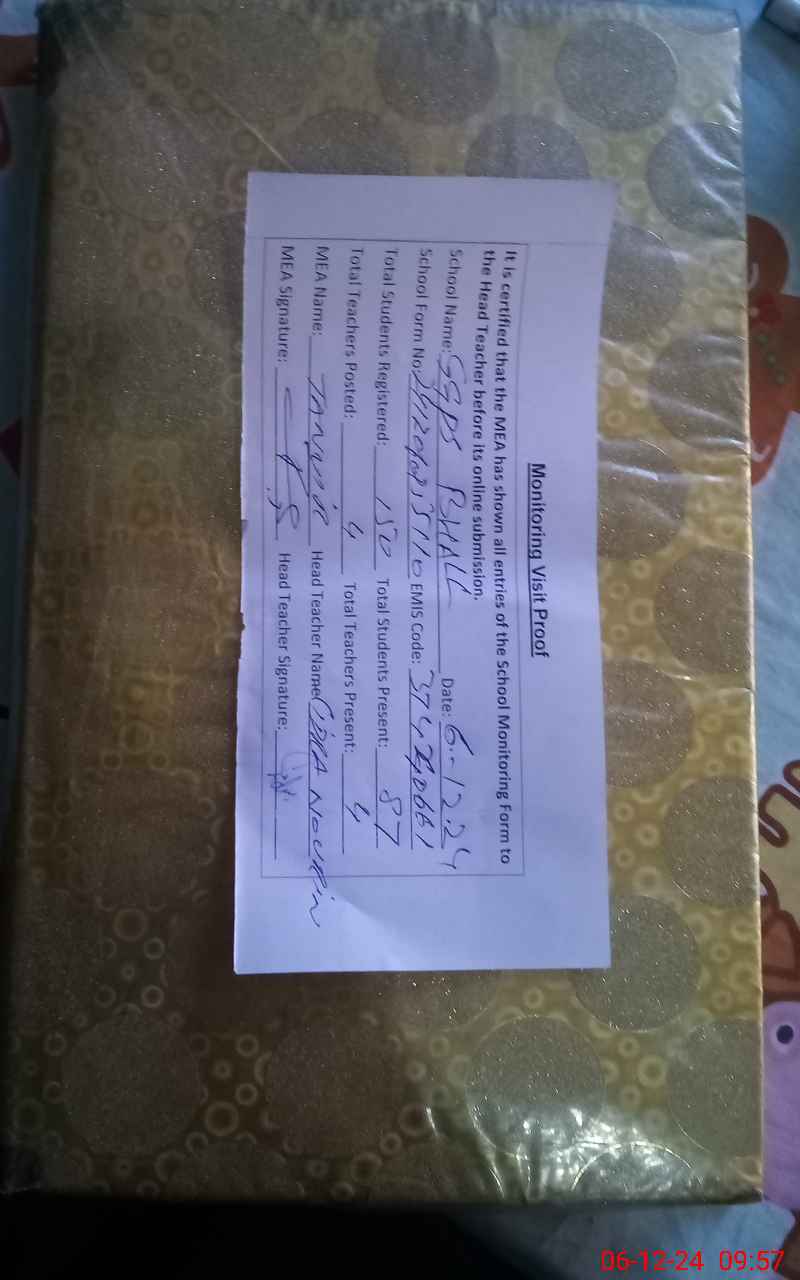 Monitoring Visit Proof
It is certified that the MEA has shown all entries of the School Monitoring Form to
the Head Teacher before its online submission.
School Name: GGPS BHALL Date: 6-12-24
School Form No: EMIS Code:
Total Students Registered: 150 Total Students Present: 87
Total Teachers Posted: 4 Total Teachers Present: 4
MEA Name: TANVIR Head Teacher Name: NOURIN
MEA Signature: Head Teacher Signature:
06-12-24 09:57